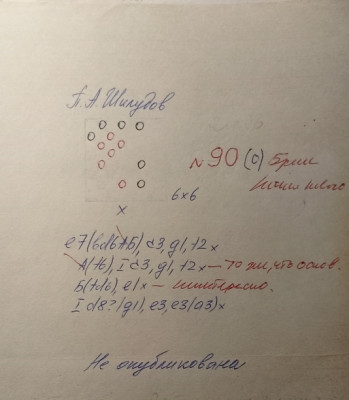 П. А. Шклудов
№ 90 (С)
6x6
x
e7(bd6+Б), c3, g1, +2x
А(f6), I c3, g1, +2x — то же, что основ.
Б(+d6), e1x — неинтересно.
I d8? (g1), e3, e3(a3)x
Не опубликована